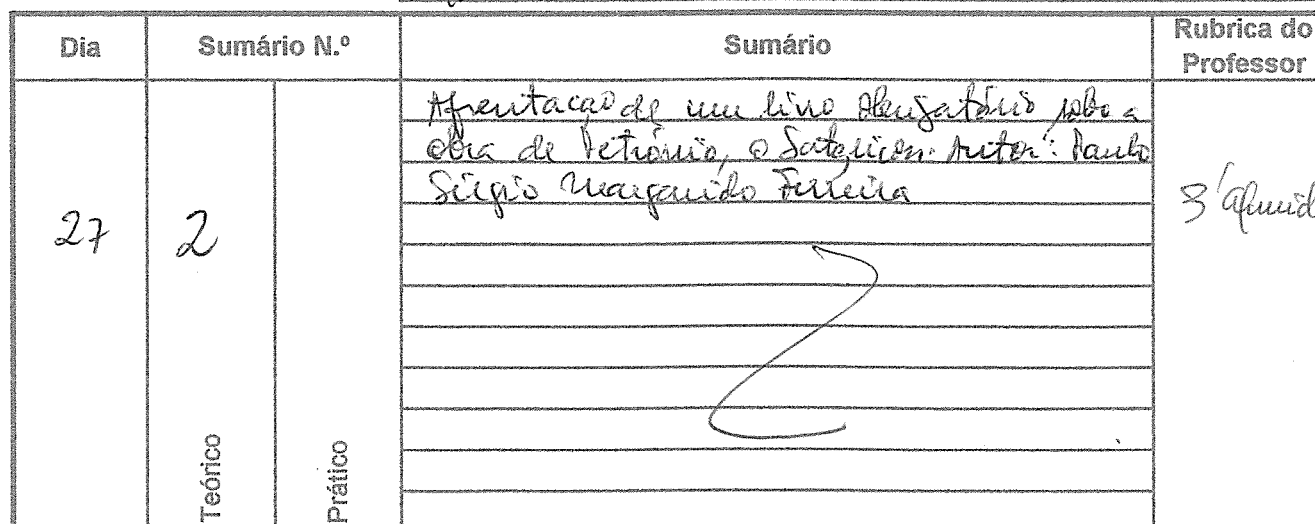 Dia
Sumário N.º
Sumário
Rubrica do
Professor
27
2
Teórico
Prático
Apresentação de um livro obrigatório sobre a
obra de Petrónio, o Satyricon. Autor: Paulo
Sérgio Margarido Ferreira
Almeid